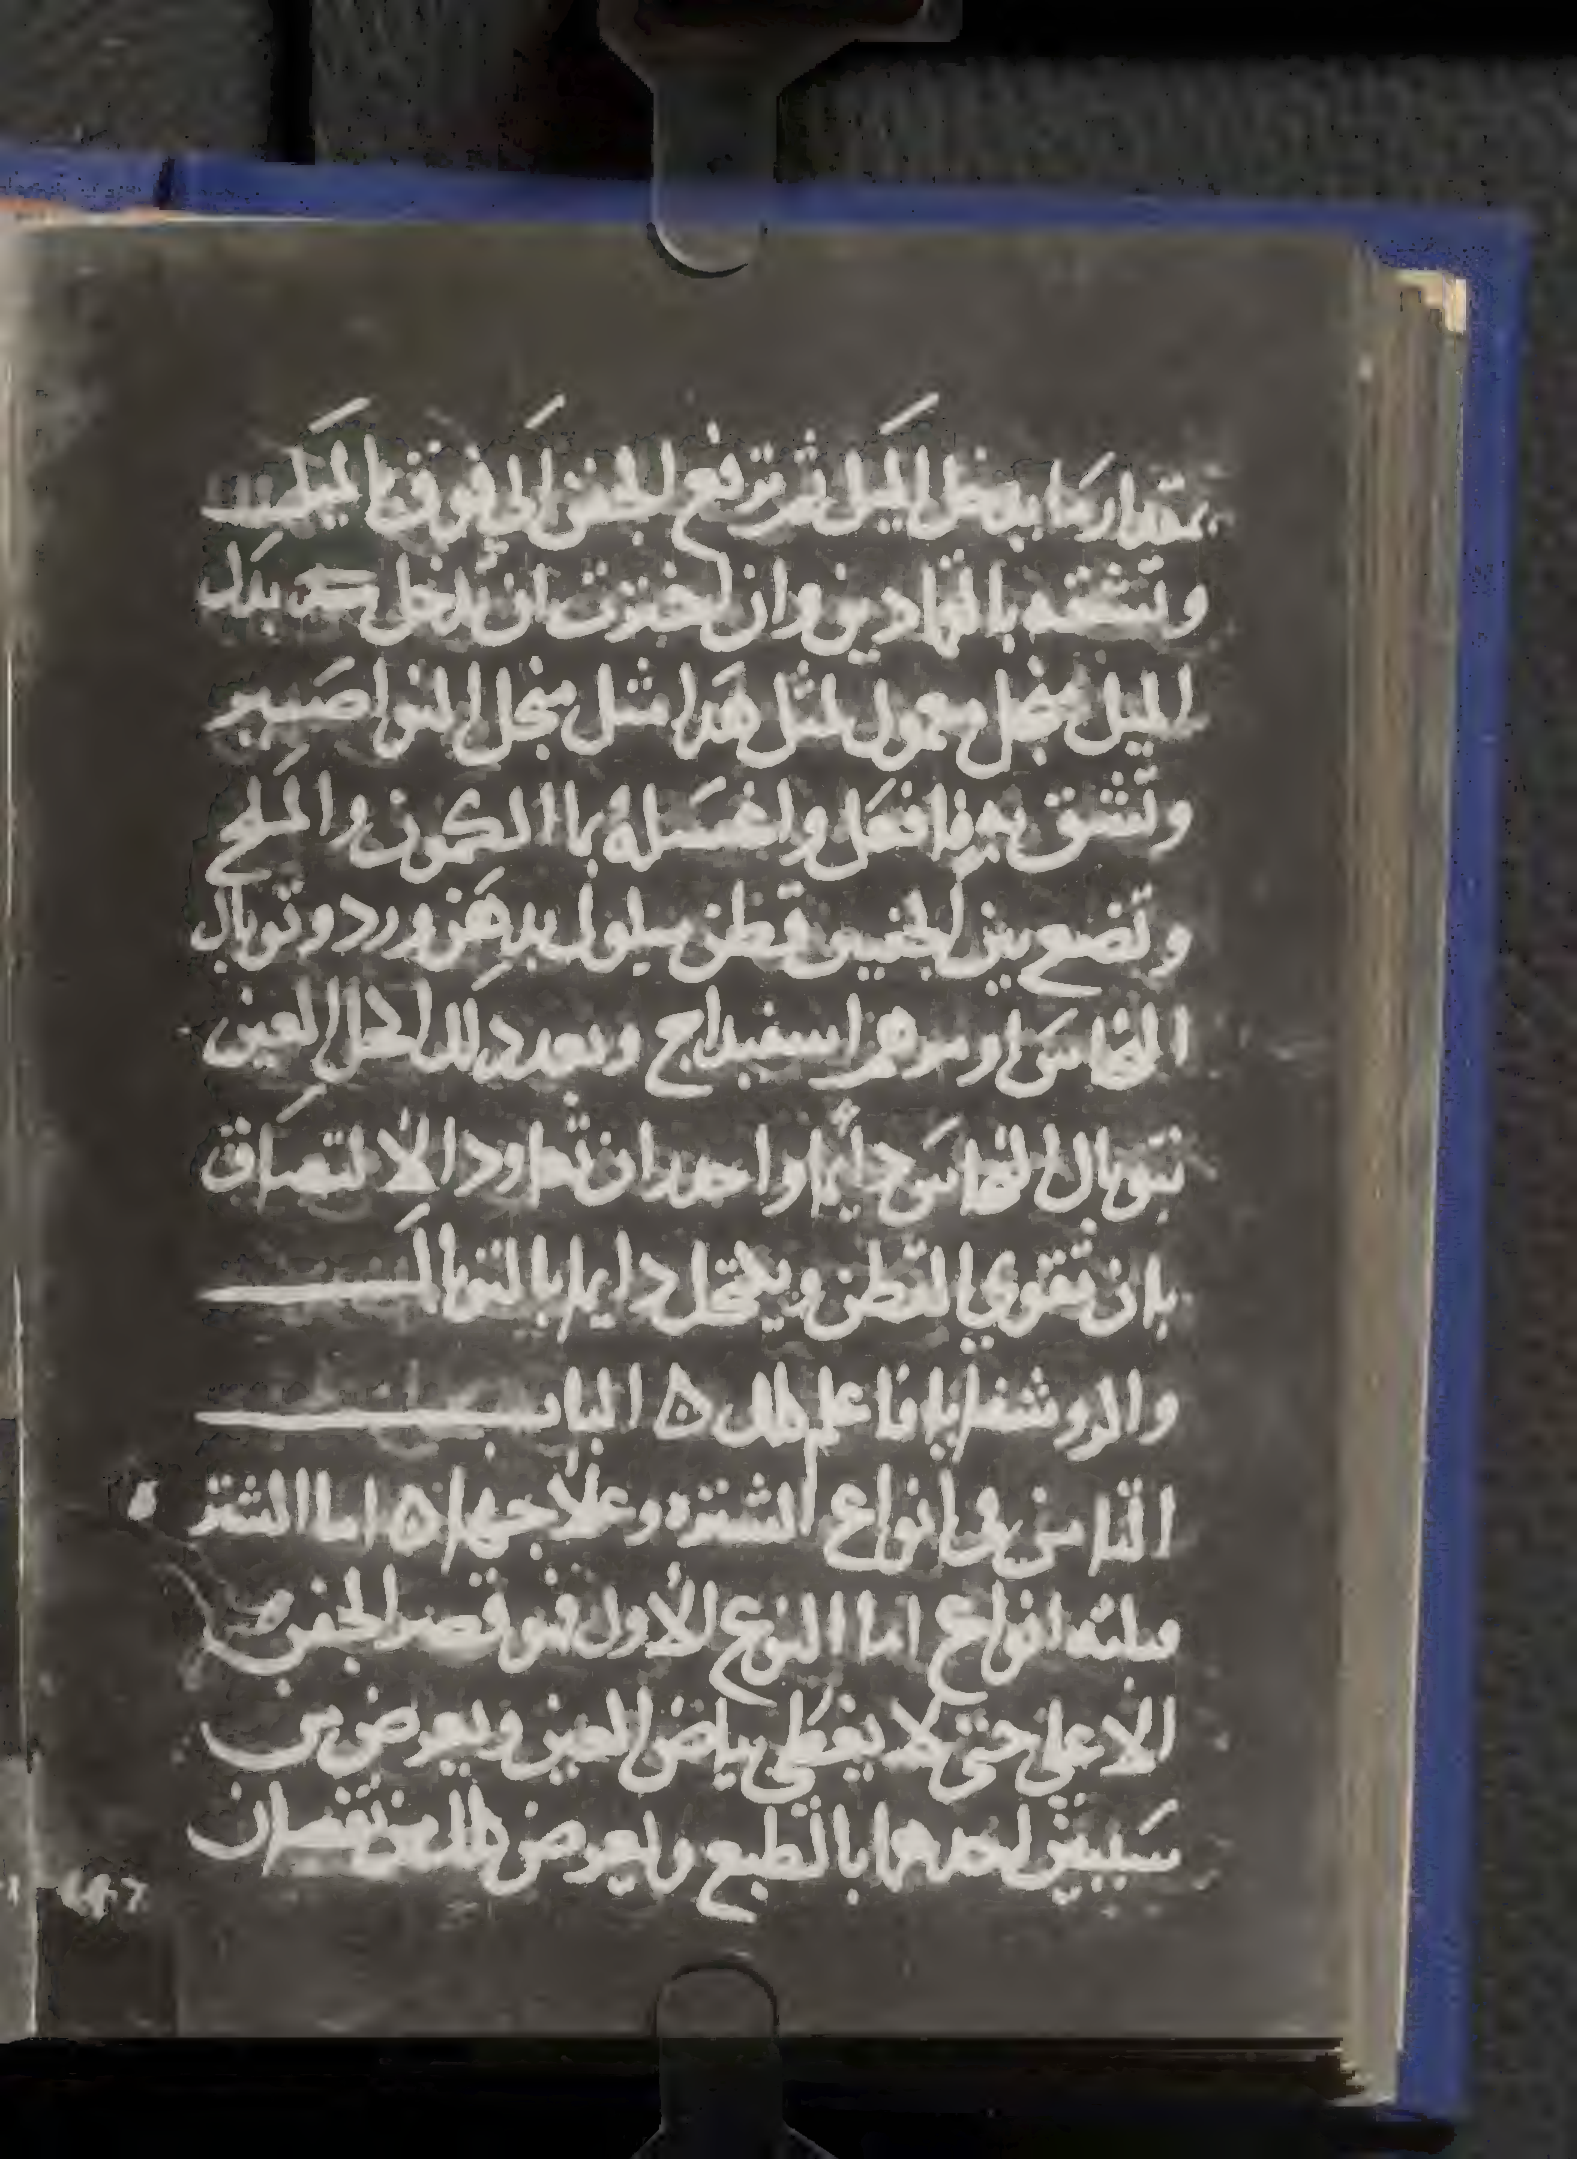 بمقدار ما يدخل الميل ثم ترفع الجفن الى فوق بالميل
وتشقه بالقمادين وان اخترت ان تدخل تحته بدل
الميل منجل معمول لمثل هذا مثل منجل النواصير
وتشق به فافعل واغسله بما الكمون والملح
وتضع بين الجفنين قطن مبلول بدهن ورد وتوبال
النحاس او مرهم اسفيداج وبعد ذلك اكحل العين
بتوبال النحاس دايما واحذر ان تعاود الالتصاق
بان تقوي القطن ويكتحل دايما بالتوبال
والروشنايا فاعلم ذلك ه الباب
الثامن في انواع الشتره وعلاجها ه اما الشتر
فثلثه انواع اما النوع الاول فهو قصر الجفن
الاعلى حتى لا يغطي بياض العين ويعرض من
سببين احدهما بالطبع ويعرض ذلك من نقصان